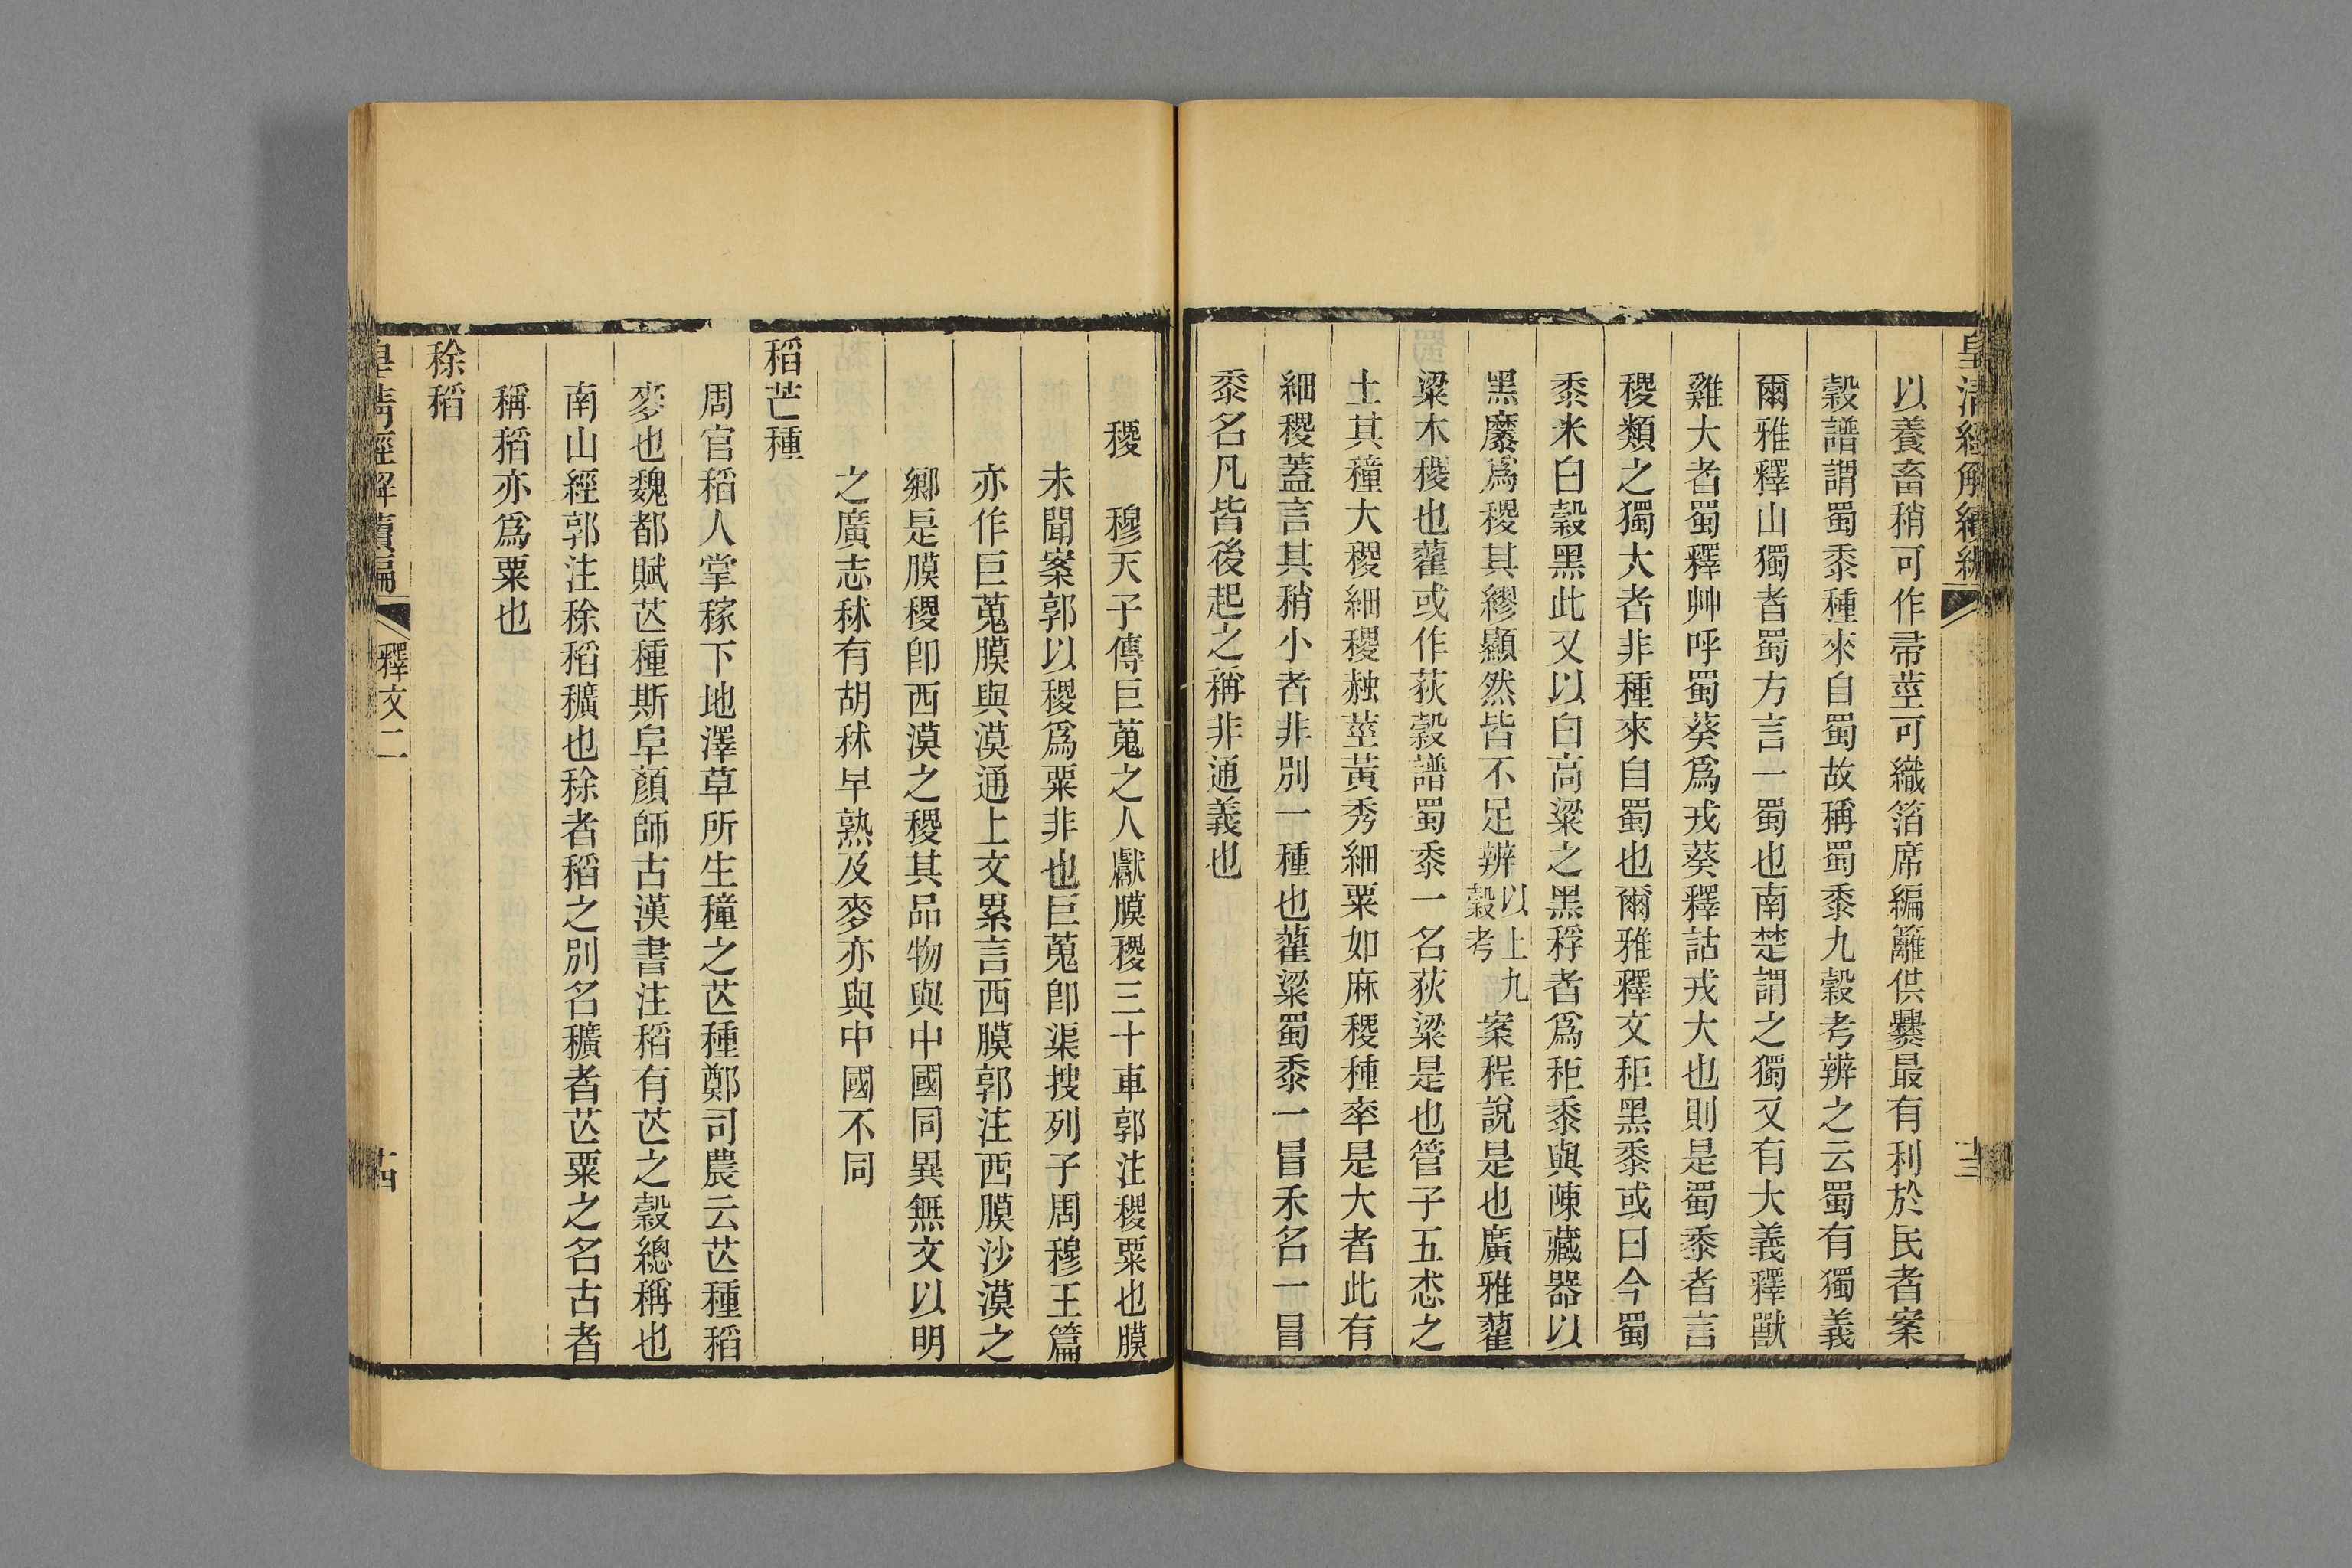 皇清經解續編
十三
以養畜稍可作帚莖可織箔席編籬供爨最有利於民者案
穀譜謂蜀黍種來自蜀故稱蜀黍九穀考辨之云蜀有獨義
爾雅釋山獨者蜀方言一蜀也南楚謂之獨又有大義釋獸
雞大者蜀釋艸呼蜀葵爲戎葵釋詁戎大也則是蜀黍者言
稷類之獨大者非種來自蜀也爾雅釋文秬黑黍或曰今蜀
黍米白穀黑此又以白高粱之黑稃者爲秬黍與陳藏器以
黑穈爲稷其繆顯然皆不足辨以上九穀考案程說是也廣雅藋
粱木稷也藋或作荻穀譜蜀黍一名荻粱是也管子五恷之
土其穜大稷細稷赨莖黃秀細粟如麻稷種率是大者此有
細稷蓋言其稍小者非別一種也藋粱蜀黍一冒禾名一冒
黍名凡皆後起之稱非通義也
稷　穆天子傳巨蒐之人獻膜稷三十車郭注稷粟也膜
未聞案郭以稷爲粟非也巨蒐卽渠搜列子周穆王篇
亦作巨蒐膜與漠通上文累言西膜郭注西膜沙漠之
鄉是膜稷卽西漠之稷其品物與中國同異無文以明
之廣志秫有胡秫早熟及麥亦與中國不同
稻芒種
周官稻人掌稼下地澤草所生穜之芒種鄭司農云芒種稻
麥也魏都賦芒種斯阜顏師古漢書注稻有芒之穀總稱也
南山經郭注稌稻穬也稌者稻之別名穬者芒粟之名古者
稱稻亦爲粟也
稌稻
皇清經解續編
釋文二
十四